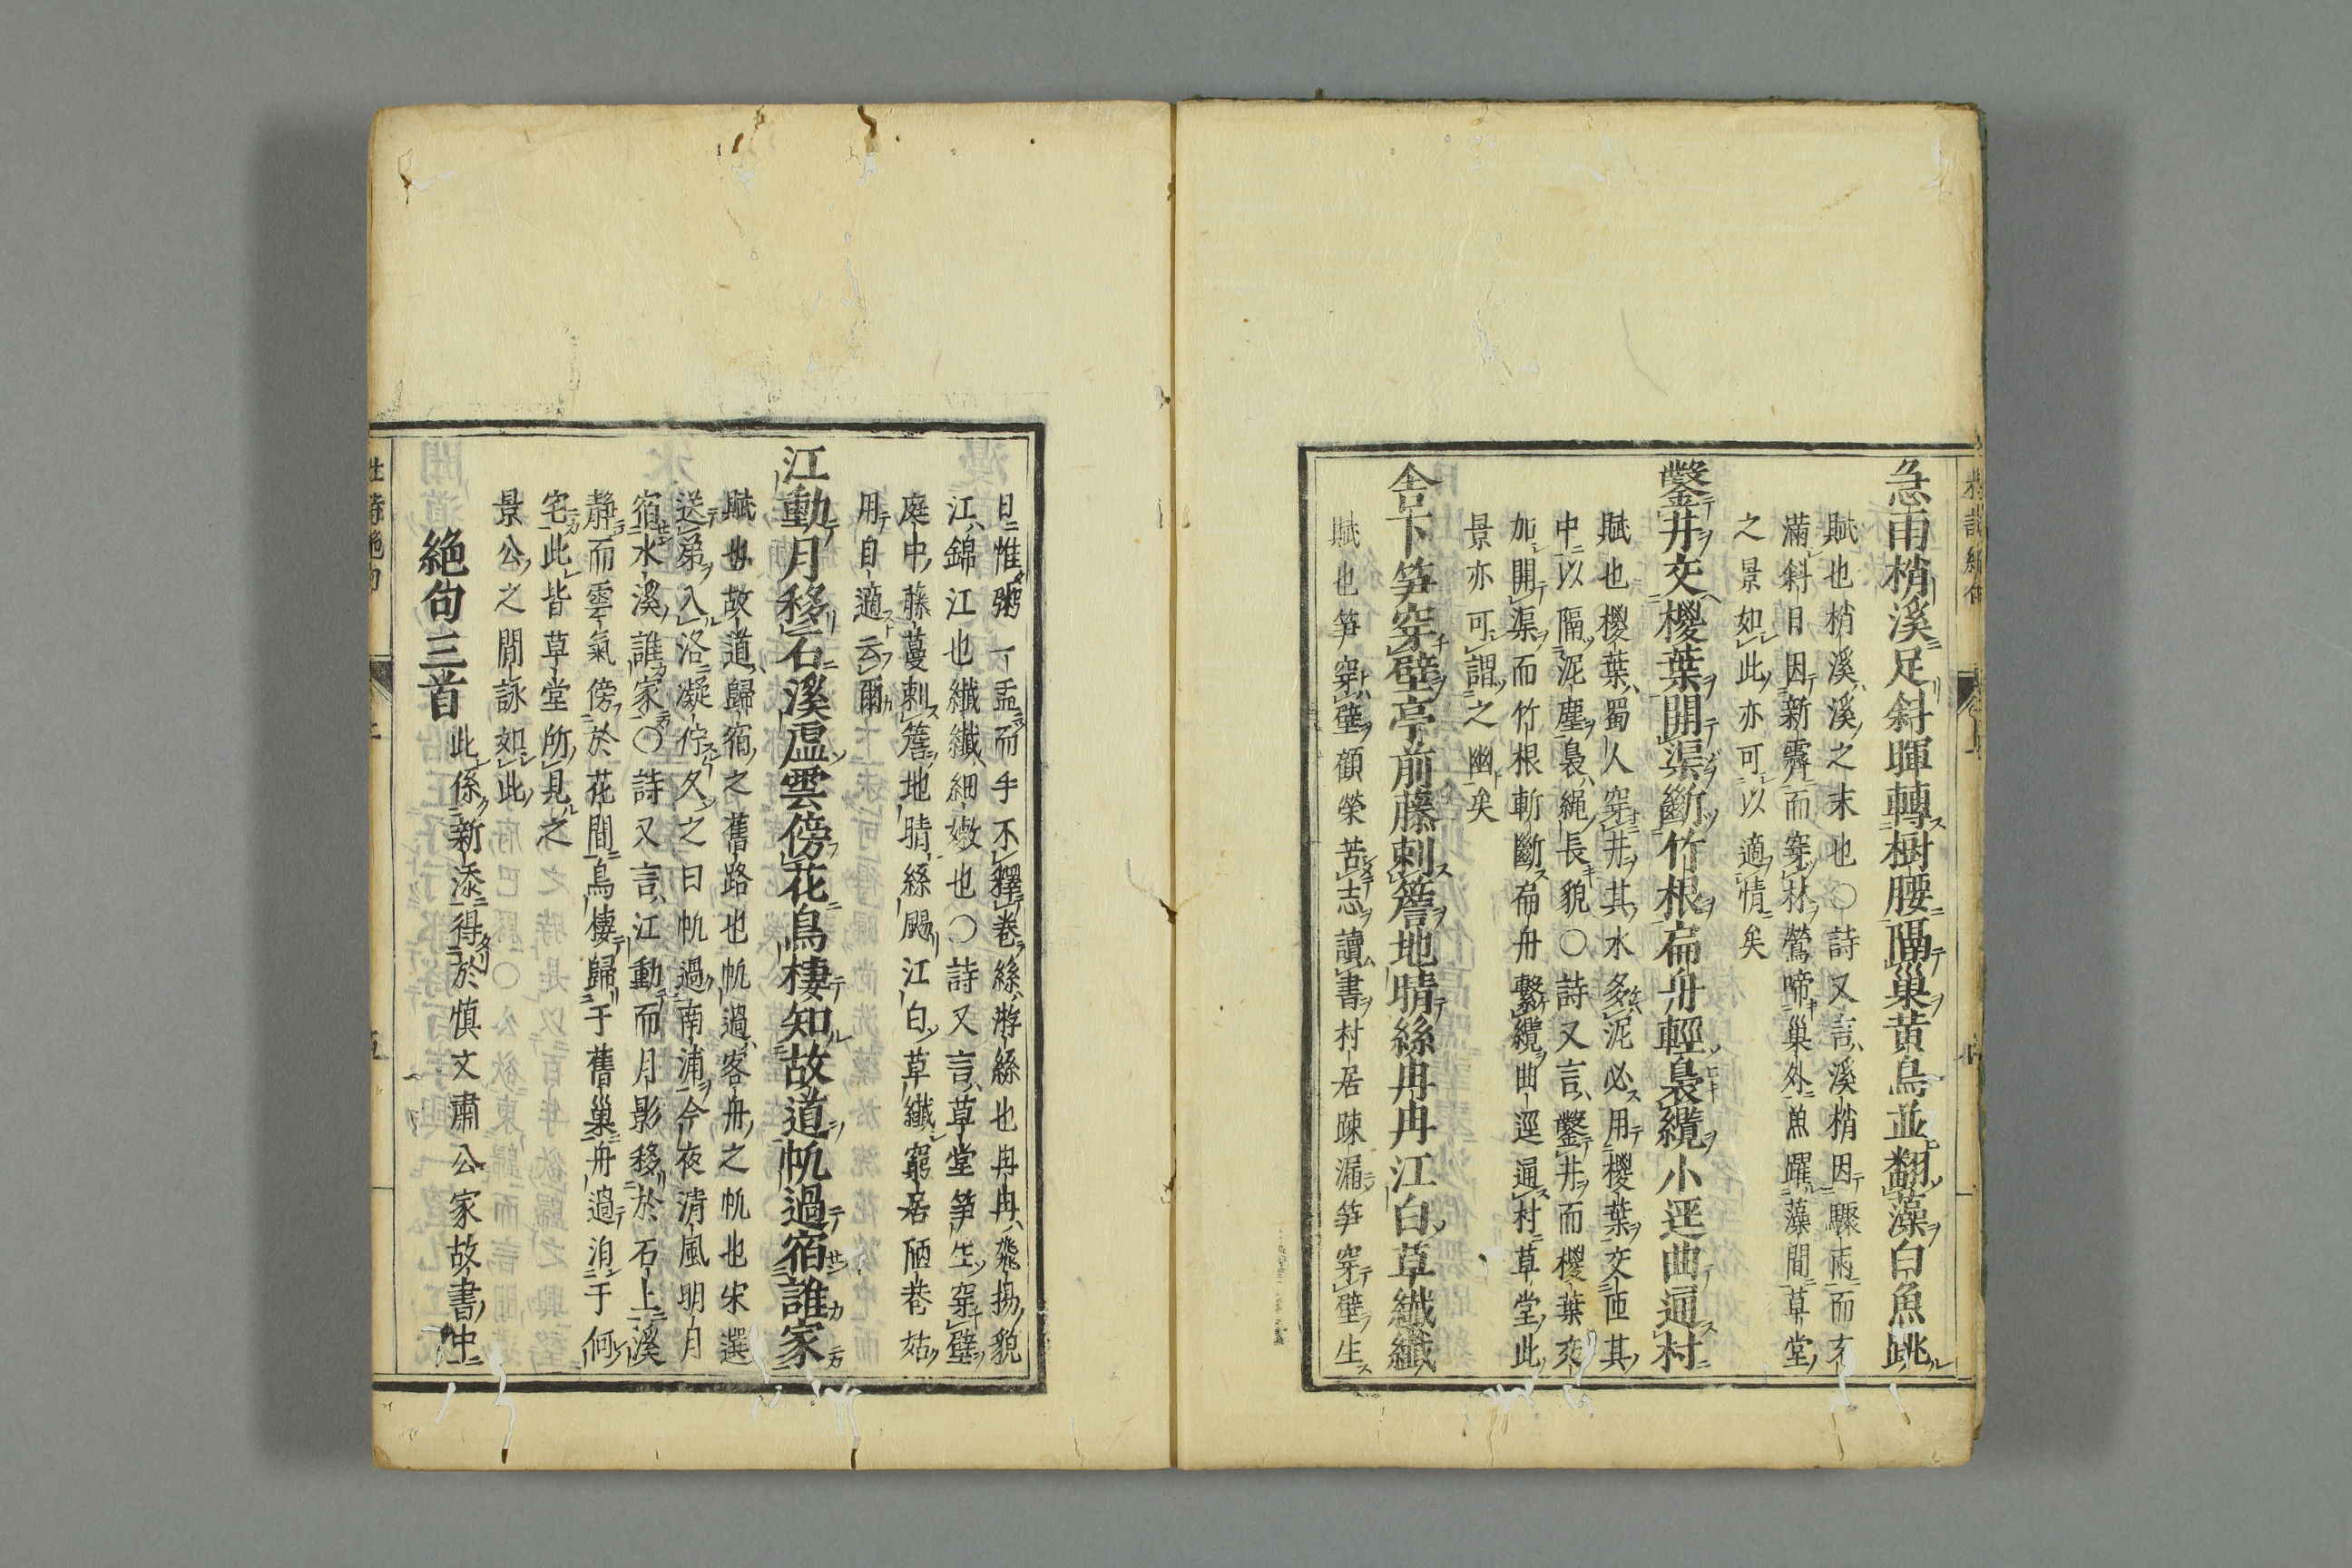 急雨梢溪足斜暉轉樹腰隔巢黃鳥並翻藻白魚跳
賦也梢溪溪之末也○詩又言溪梢因驟雨而
滿斜日因新霽而穿林鶯啼巢外魚躍藻間草堂
之景如此亦可以適情矣
鑿井交椶葉開渠斷竹根扁舟輕裊纜小逕曲通村
賦也椶葉蜀人穿井其水多泥必用椶葉交匝其
中以隔泥塵裊繩長貌○詩又言鑿井而椶葉交
加開渠而竹根斬斷扁舟繫纜曲逕通村草堂此
景亦可謂之幽矣
舍下笋穿壁亭前藤刺簷地晴絲冉冉江白草纖纖
賦也笋穿壁顏榮苦志讀書村居疎漏笋穿壁生
日惟粥一盂而手不釋卷絲游絲也冉冉飛揚貌
江錦江也纖纖細嫩也○詩又言草堂笋生穿壁
庭中藤蔓刺簷地晴絲颺江白草纖窮居陋巷姑
用自適云爾
江動月移石溪虛雲傍花鳥棲知故道帆過宿誰家
賦也故道歸宿之舊路也帆過客舟之帆也宋選
送弟入洛凝佇久之曰帆過南浦今夜清風明月
宿水溪誰家○詩又言江動而月影移於石上溪
靜而雲氣傍於花間鳥棲歸于舊巢舟過泊于何
宅此皆草堂所見之
景公之閒詠如此
絶句三首 此係新添得於慎文肅公家故書中